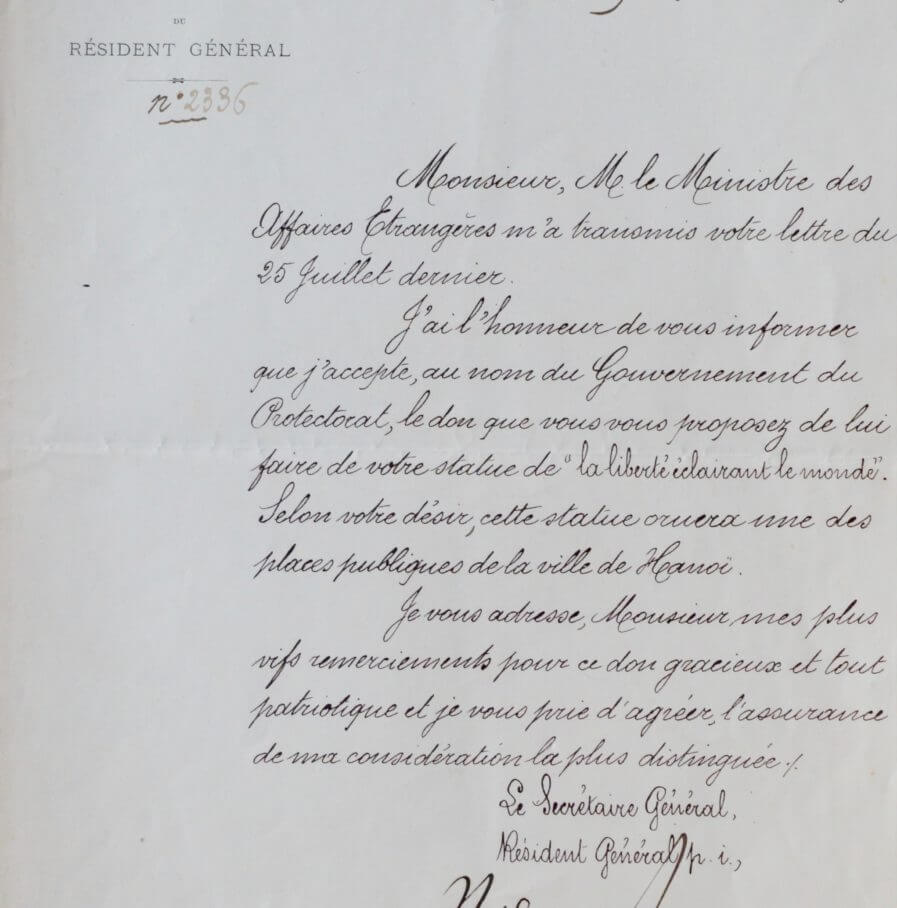 DU
RÉSIDENT GÉNÉRAL
n° 2336
Monsieur, M. le Ministre des
Affaires Etrangères m'a transmis votre lettre du
25 Juillet dernier.
J'ai l'honneur de vous informer
que j'accepte, au nom du Gouvernement du
Protectorat, le don que vous vous proposez de lui
faire de votre statue de "la liberté éclairant le monde".
Selon votre désir, cette statue ornera une des
places publiques de la ville de Hanoï.
Je vous adresse, Monsieur, mes plus
vifs remerciements pour ce don gracieux et tout
patriotique et je vous prie d'agréer, l'assurance
de ma considération la plus distinguée ./.
Le Secrétaire Général,
Résident Général p. i.,